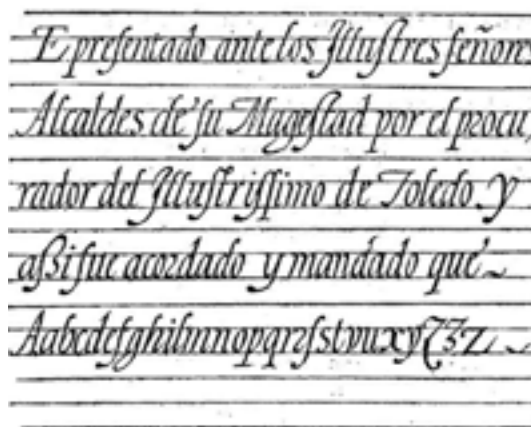 E presentado ante los Jllustres señores
Alcaldes de su Magestad por el procu,
rador del Jllustrissimo de Toledo y
aßi fue acordado y mandado que
Aabcdefghilmnopqrsſstvuxyz3z